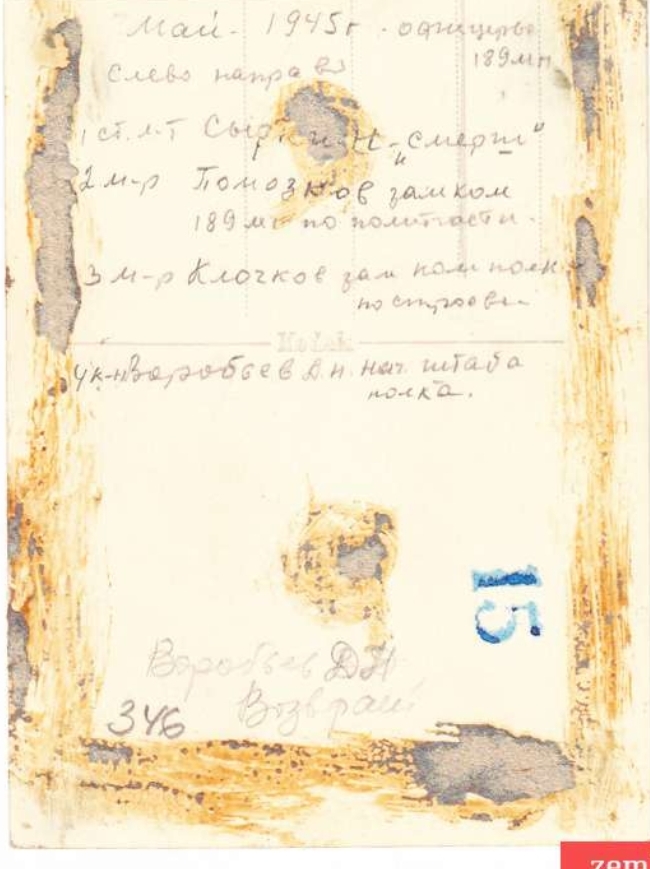 Май - 1945г. офицеры
189мп
слево направо
1 ст. л-т Сыркин Н „Смерш"
2 м-р Помозков замком
189 мп по политчасти.
3 м-р Клочков зам ком полк
по строев
4 к-н Воробьев Д Н. нач. штаба
полка.
15
Воробьев ДН
Возврат
346
zem